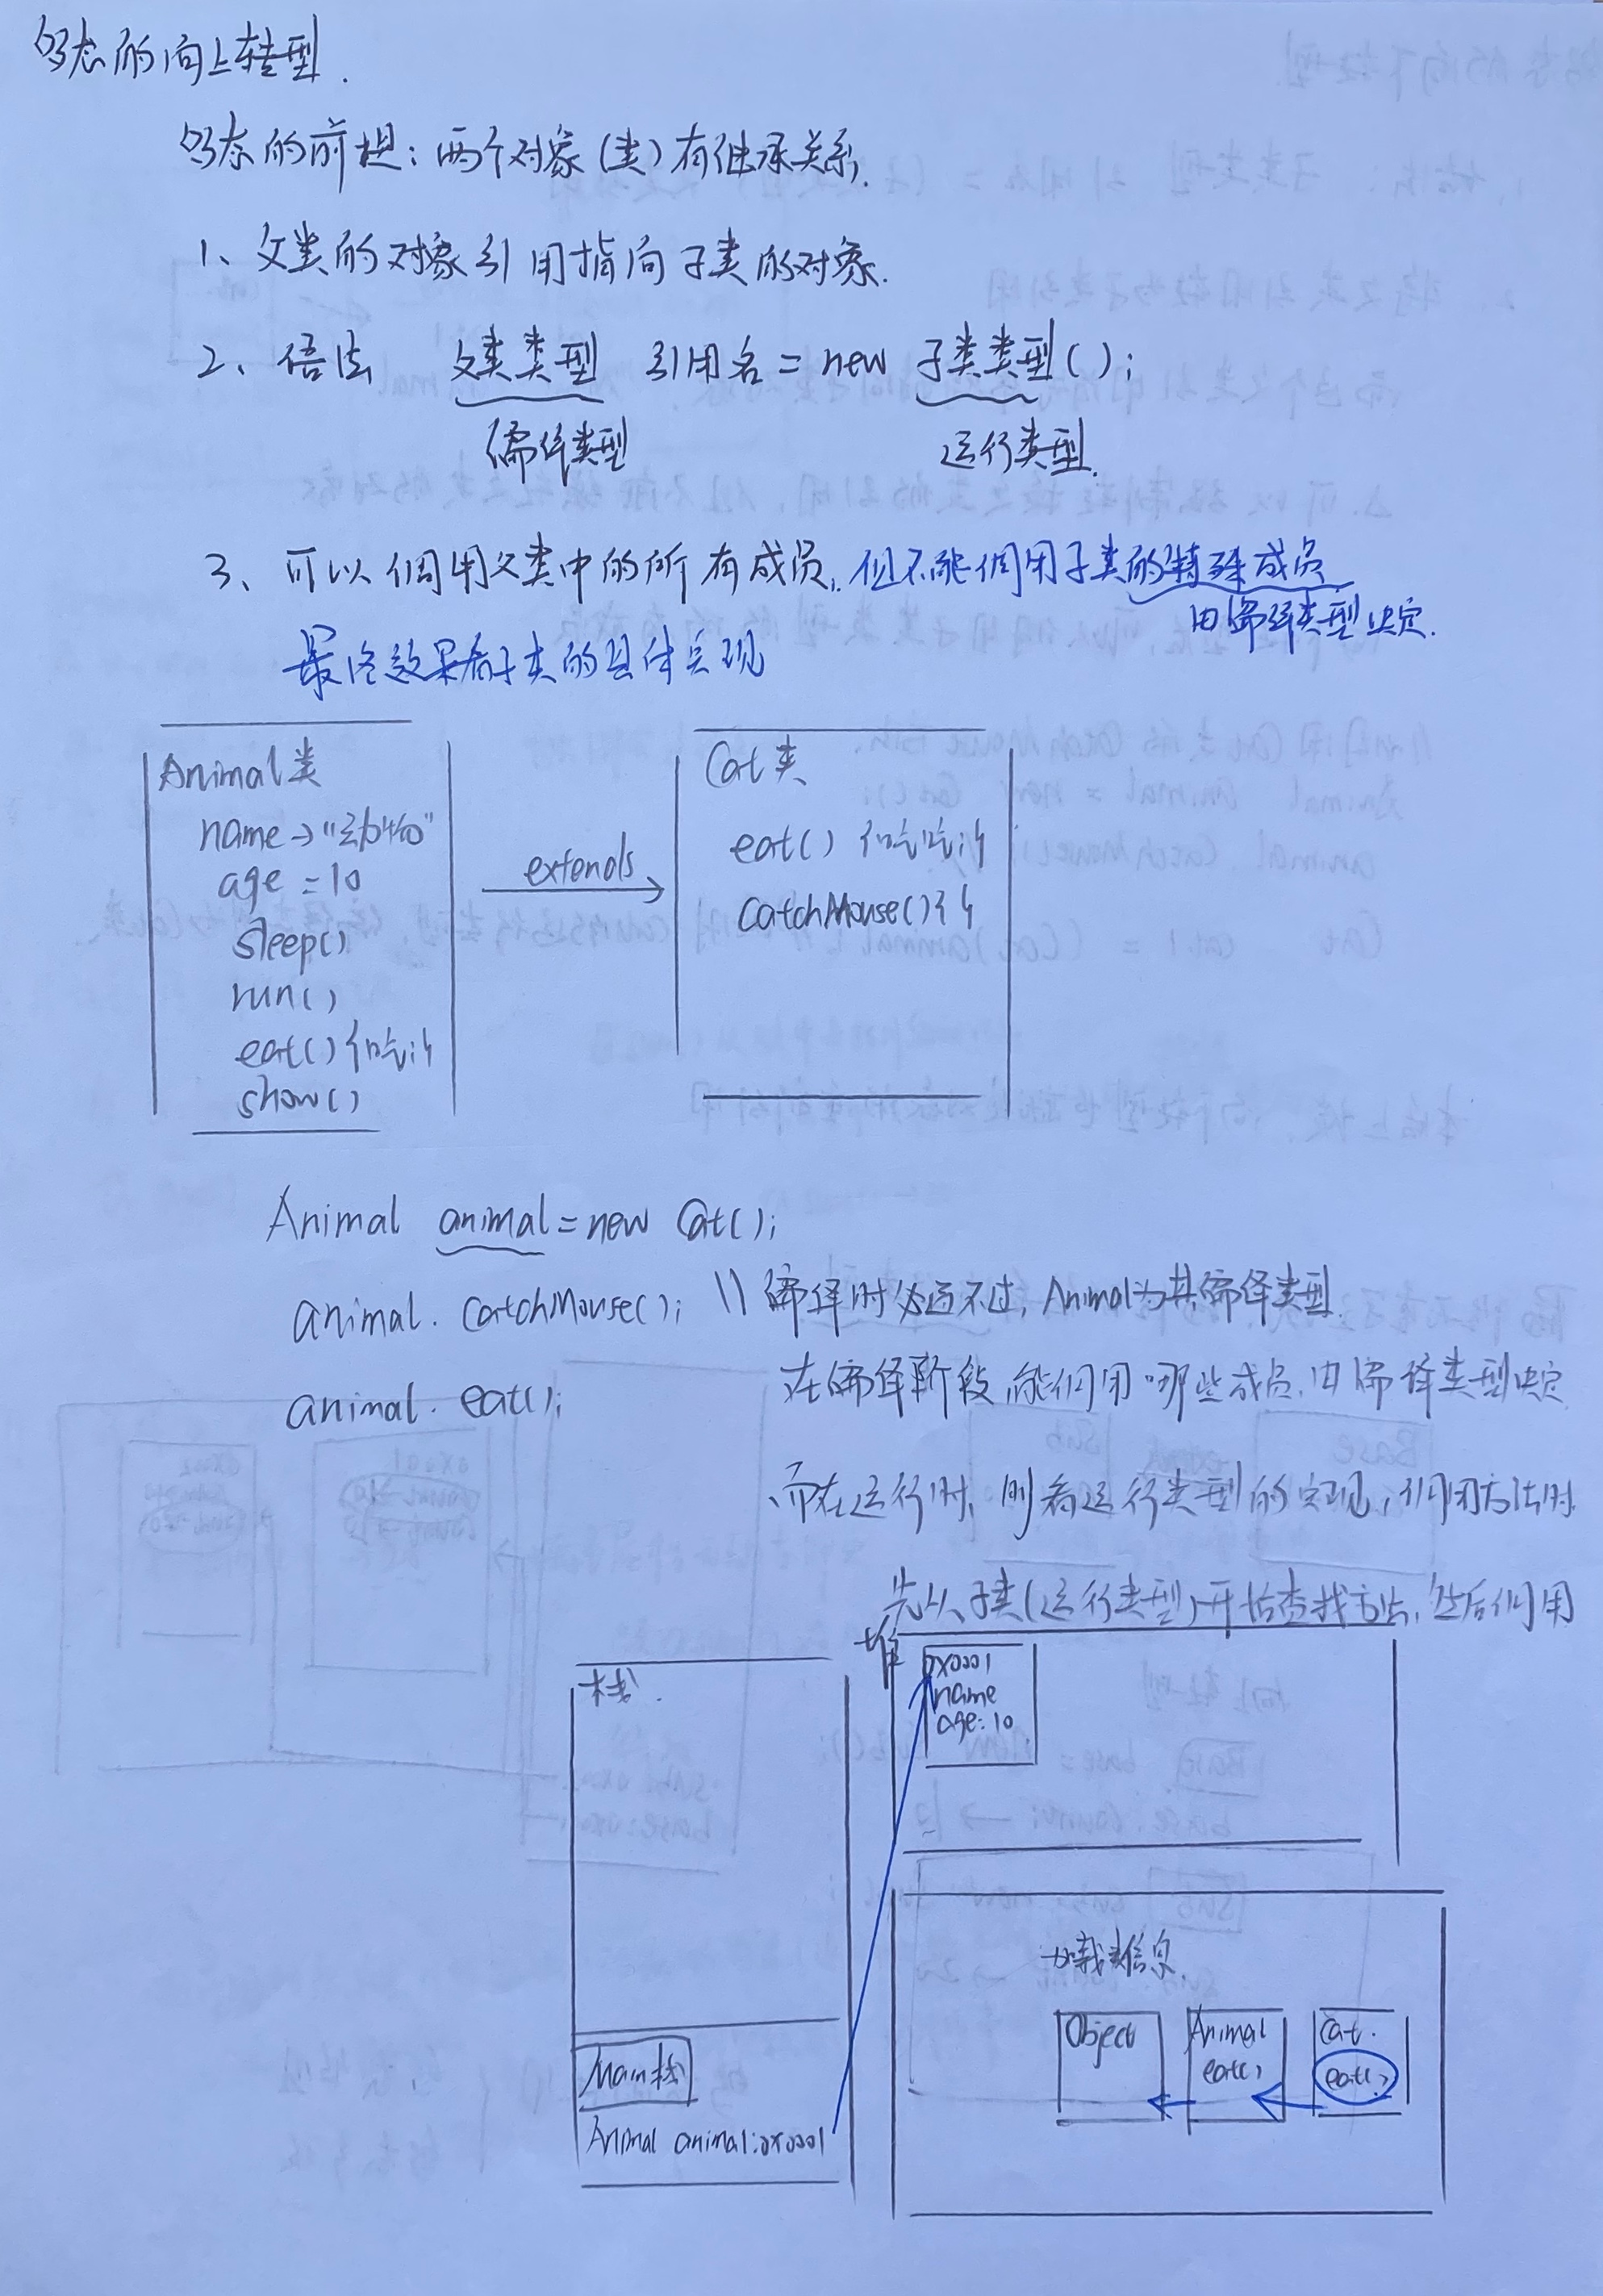 多态的向上转型.
多态的前提：两个对象(类)有继承关系.
1、父类的对象引用指向子类的对象.
2、语法 父类类型 引用名 = new 子类类型();
编译类型 运行类型.
3、可以调用父类中的所有成员, 但不能调用子类的特殊成员
由编译类型决定.
最终效果看子类的具体实现
Animal类
name→"动物"
age = 10
sleep()
run()
eat(){吃;}
show()
extends
Cat类
eat() {吃吃;}
catchMouse(){}
Animal animal = new Cat();
animal. catchMouse(); \\ 编译时必通不过, Animal为其编译类型.
在编译阶段, 能调用哪些成员, 由编译类型决定
animal. eat();
、而在运行时, 则看运行类型的实现, 调用方法时
先从子类(运行类型)开始查找方法, 然后调用
堆
0x0001
name
age: 10
栈.
Main栈
Animal animal:0x0001
加载类信息.
Object
Animal
eat()
Cat.
eat()